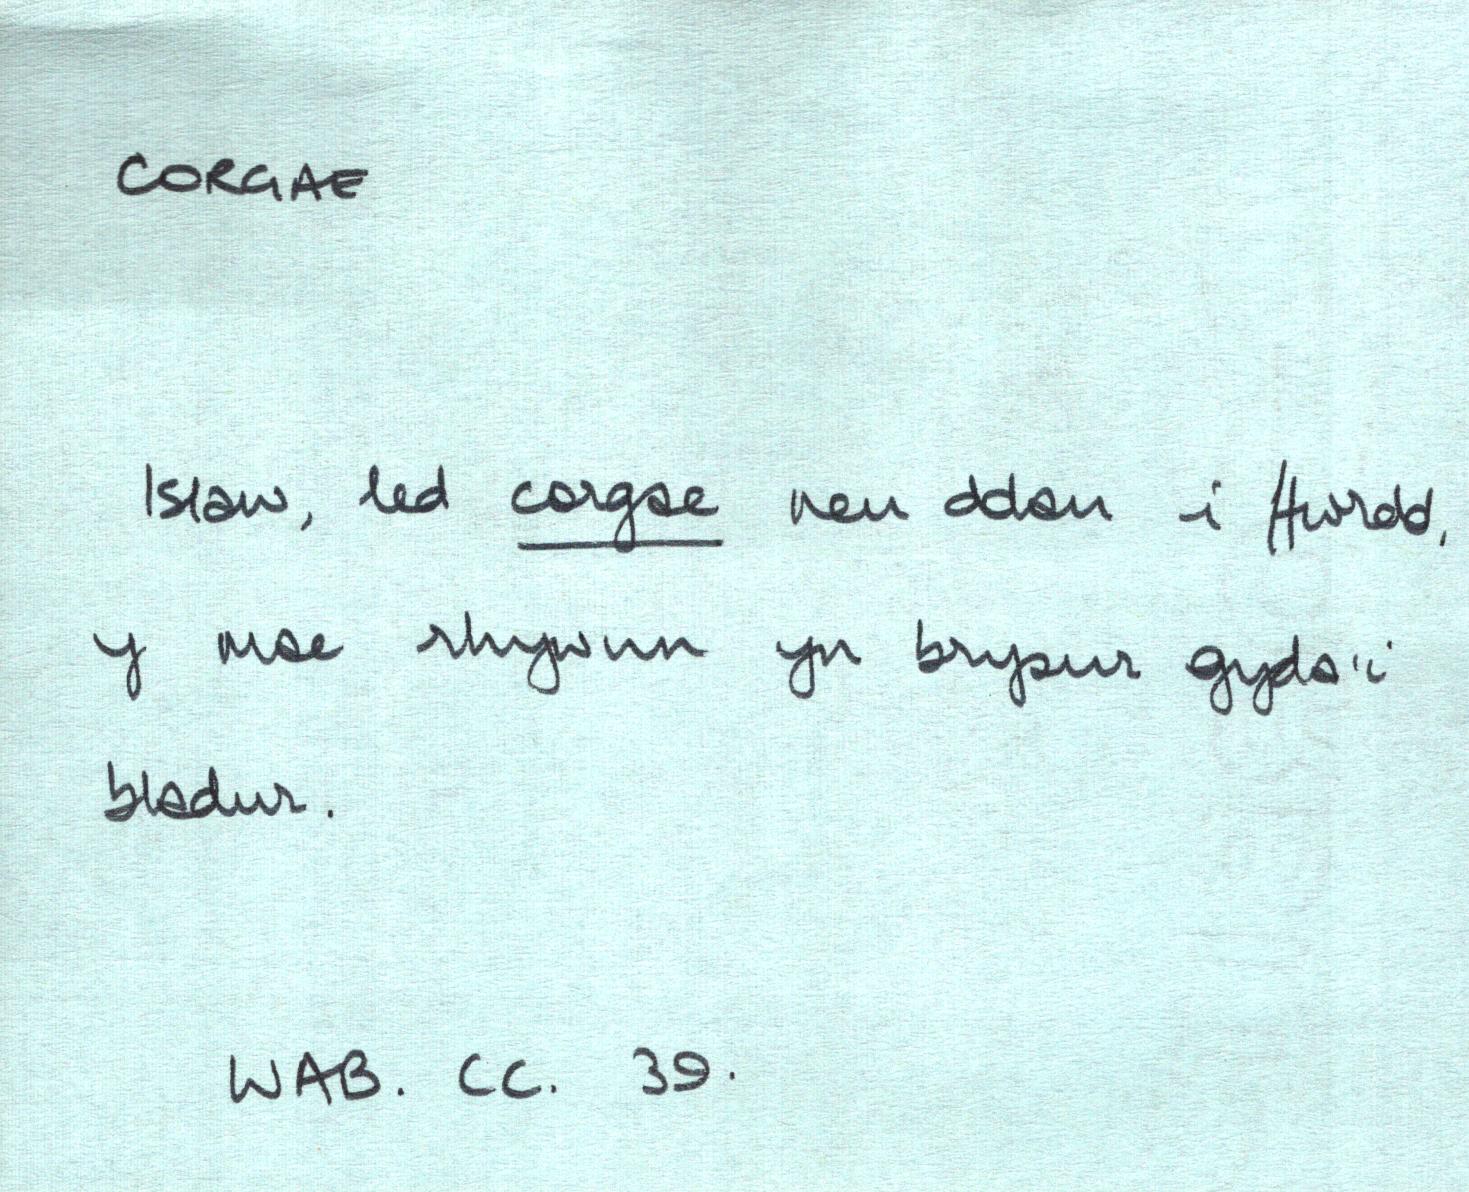 CORGAE
Islaw, led corgae neu ddau i ffwrdd,
y mae rhywun yn brysur gyda'i
bladur.
WAB. CC. 39.